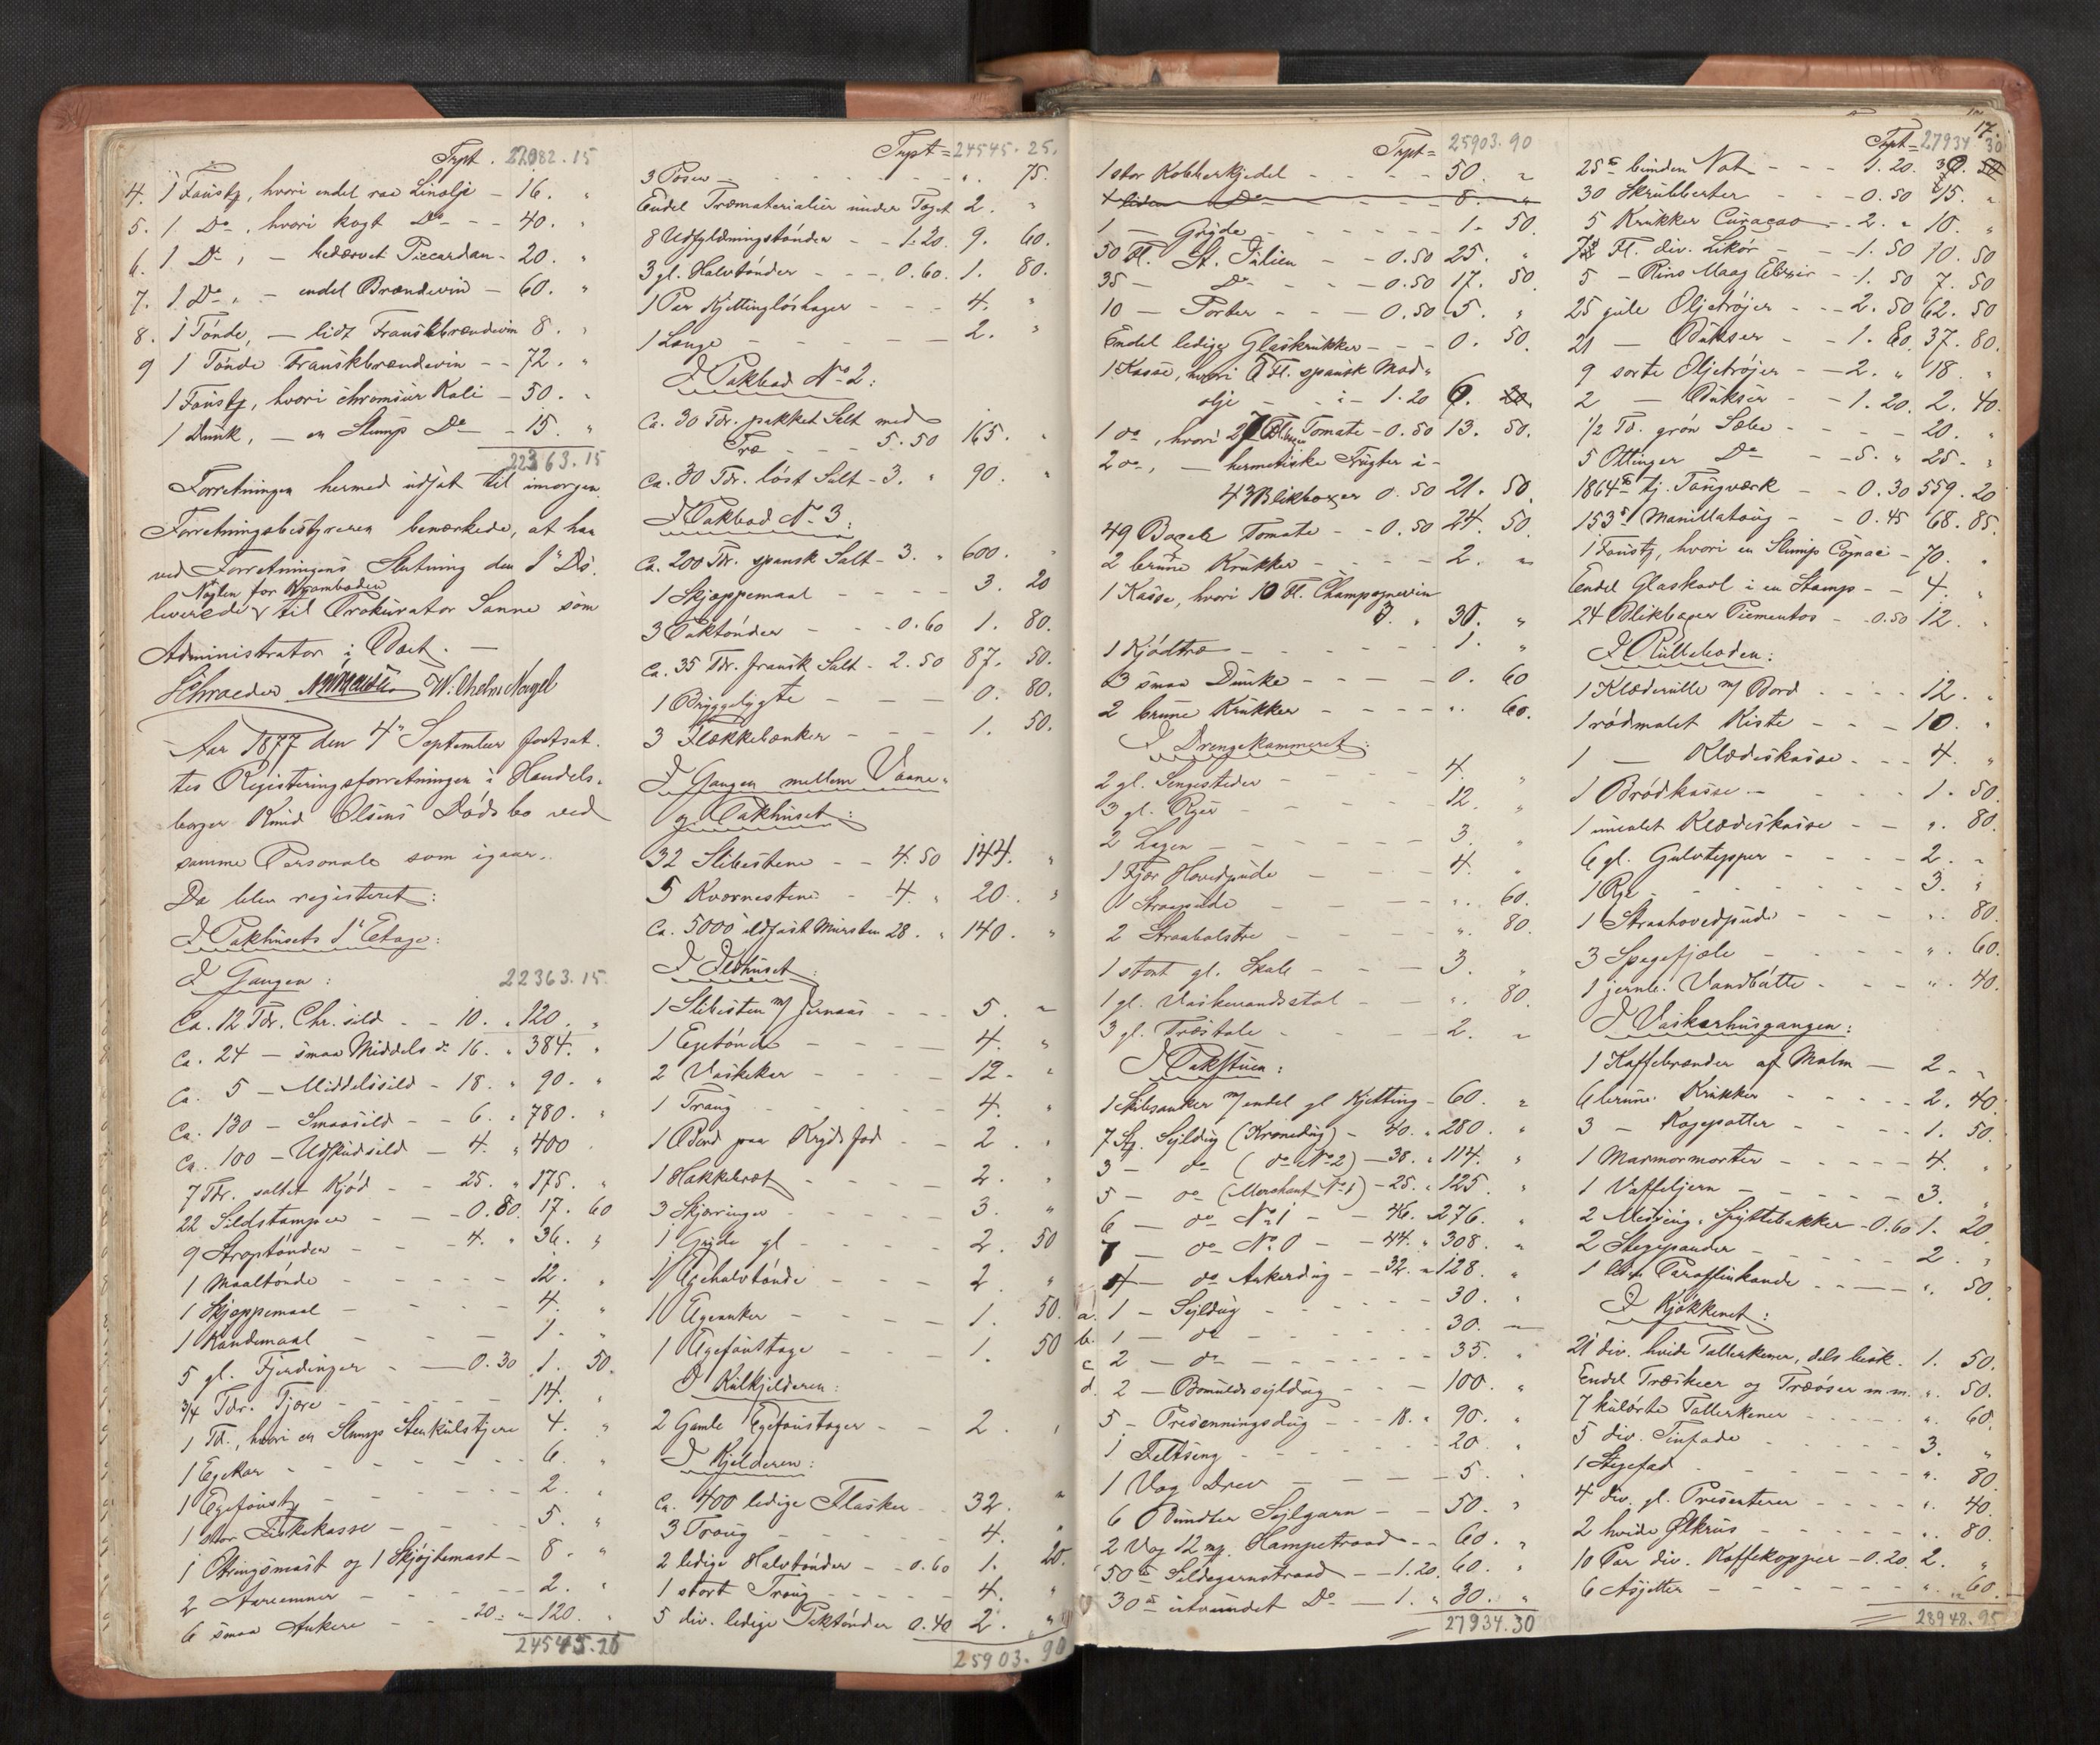 Trpt. 22082.15
4. 1 Faustg, hvori endel raa Linolje - 16. "
5. 1 Do, hvori kogt Do - - 40. "
6. 1 Do, - bedærvet Piccardan - 20. "
7. 1 Do, - endel Brændevin - 60. "
8. 1 Tönde, - lidt Franskbrændevin 8. "
9 1 Tönde Franskbrændevin - - 72. "
1 Faustg, hvori chromsur Kali - 50. "
1 Dunk, - en Slump Do - 15. "
22363.15
Forretningen hermed udsat til imorgen.
Forretningsbestyreren bemærkede, at han
ved Forretningens Slutning den 1ste Ds.
Nøglen for Krambaden
leverede til Prokurator Sanne som
Administrator i Boet. -
Schroeder Wilhelm Naugel
Aar 1877 den 4de September fortsat-
tes Registreringsforretningen i Handels-
borger Knud Olsens Dödsbo ved
samme Personale som igaar.
Da blev registreret:
I Pakhusets 1ste Etage:
I Gangen: 22363.15
Ca. 12 Tdr. Chr. sild - - 10. " 120. "
Ca. 24 - smaa Middels do 16. " 384. "
Ca. 5 - Middelssild - 18. " 90. "
Ca. 130 - Smaasild - - 6. " 780. "
Ca. 100 - Udskudsild - 4. " 400
7 Tdr. saltet Kjöd - - 25. " 175. "
22 Sildstamper - - 0.80. 17. 60
9 Straptönder - - 4. " 36. "
1 Maaltönde - - - - 12. "
1 Skjæppemaal - - - - 4. "
1 Kandemaal - - - 1. "
5 gl. Fjerdinger - - 0.30 1. 50.
3/4 Tdr. Tjære - - - - 14. "
1 Td., hvori en Slump Stenkulstjære 4. "
1 Egekar - - - - - - 6. "
1 Egefoustg - - - - - 2. "
1 stor Fiskekasse - - - - 5. "
1 Otringsmast og 1 Skjöjtemast - 8. "
2 Aareemner - - - - 2. "
6 smaa Ankere - - 20. " 120. "
24545.25
Trpt = 24545.25.
3 Poser - - - - - - - ". 75.
Endel Træmaterialier under Taget 2. "
8 Udfyldningstönder - - 1.20. 9. 60.
3 gl. Halvtönder - - - 0.60. 1. 80.
1 Par Kjettingløshager - - - 4. "
1 Længe - - - - - 2. "
I Pakbod No 2:
Ca. 30 Tdr. pakket Salt med
Træ - - - 5.50 165. "
Ca. 30 Tdr. löst Salt - 3. " 90. "
I Pakbod No 3:
Ca. 200 Tdr. spansk Salt - 3. " 600. "
1 Skjæppemaal - - - - 3. 20
3 Paktönder - - - 0.60 1. 80.
Ca. 35 Tdr. fransk Salt - 2.50 87. 50.
1 Bryggelygte - - - - 0. 80.
3 Flækkebænker - - - 1. 50.
I Gangen mellem Vaane-
og Pakhuset:
32 Slibestene - - 4.50 144. "
5 Kværnestene - - 4. " 20. "
Ca. 5000 ildfast Mursten 28. " 140. "
I Ildhuset:
1 Slibesten m/ Jernaas - - - 5. "
1 Egetönde - - - - 4. "
2 Vaskekar - - - - 12. "
1 Traug - - - - - - 4. "
1 Bord paa Krydsfod - - 2. "
1 Hakkebræt - - - - - 2. "
3 Skjæringer - - - - - 3. "
1 Gryde gl - - - - - 2. 50
1 Egehalvtönde - - - 2 "
1 Egeanker - - - - 1. 50.
1 Egefoustage - - - 1. 50
I Kulkjelderen:
2 Gamle Egefoustager - - 2. "
I Kjelderen:
Ca. 400 ledige Flasker - - 32. "
3 Traug - - - - - 4. "
2 ledige Halvtönder - - 0.60 1. 20.
1 stort Traug - - - - 4. "
5 div. ledige Paktönder 0.40 2. "
25903.90
Trpt = 25903.90
1 stor Kobberkjedel - - - - - 50. "
1 liden Do - - - - - 8. "
1 - Gryde - - - - - - 1. 50.
50 Fl. St. Julien - - 0.50 25. "
35 - Do - - - 0.50 17. 50.
10 - Porter - - - 0.50 5. "
Endel ledige Glaskrukker - - - 0. 50.
1 Kasse, hvori 6 Fl. spansk Mad-
olje - - - 1.20 6. 20.
1 do, hvori 27 Tomate - 0.50 13. 50.
2 do, - hermetiske Frugter i -
43 Blikboxer 0.50 21. 50.
49 Boxer Tomate - - 0.50 24. 50.
2 brune Krukker - - - - 2. "
1 Kasse, hvori 10 Fl. Champagnevin
3. " 30. "
1 Kjödtræ - - - - - - 1. "
3 smaa Dunke - - - - 0. 60
2 brune Krukker - - - - ". 60.
I Drengekammeret:
2 gl. Sengesteder - - - - 4. "
3 gl. Ryer - - - - - 12. "
2 Lagen - - - - - - 3. "
1 Fjær Hovedpude - - - 4. "
1 Straapude - - - - ". 60.
2 Straabolstre - - - - ". 80.
1 stort gl. Skab - - - 3. "
1 gl. Vaskevandsstol - - - ". 80.
3 gl. Træstole - - - - 2. "
I Pakstuen:
1 Skibsanker m/ endel gl Kjetting - 60. "
7 Stg. Sejldug (Kronedug) - 40. " 280. "
3 - do (do No 2) - 38. " 114. "
5 - do (Merchant No 1) - 25. " 125. "
6 - do No 1 - - 46. " 276. "
7 - do No 0 - - 44. " 308. "
4 - do Ankerdug - - 32. " 128. "
a. 1 - Sejldug - - - - - 30. "
b. 1 - do - - - - - - 30. "
c 2 - do - - - - - - 35. "
d. 2 - Bomuldssejldug - - - 100. "
5 - Presenningsdug - - - 18. " 90. "
1 Feltseng - - - - - - 20. "
1 Vog Drev - - - - - 5. "
6 Bundter Sejlgarn - - - 50. "
2 Vog 12 mp. Hampetraad - - 60. "
50 tt Sildegarnstraad - - 1.20. 60. "
30 tt utvundet Do - - 1. " 30. "
27934.30
17.
Trpt = 27934.30
25 tt bunden Not - - - 1.20. 30. 50
30 Skrubberter - - - 0.50 15. "
5 Krukker Curaçao - - 2. " 10. "
7 Fl. div. Likör - - - 1.50 10. 50
5 - Rins Maag Elixir - - 1.50 7. 50
25 gule Oljetröjer - - - 2.50 62. 50
21 - Buxser - - 1.80. 37. 80.
9 sorte Oljetröjer - - 2. " 18. "
2 - Buxser - - 1.20. 2. 40.
1/2 Td. grön Sæbe - - - - 20. "
5 Ottinger Do - - 5. " 25. "
1864 tt tj. Taugværk - - 0.30 559. 20
153 tt Manillatoug - - 0.45 68. 85.
1 Faustg, hvori en Slump Cognac - 70. "
Endel Glaskavl i en Stamp - - 4. "
24 Blikboxer Piementos - 0.50 12. "
I Rulleboden:
1 Klæderulle m/ Bord - - - - 12. "
1 rödmalet Kiste - - - - 10. "
1 - Klædeskasse - - - 4. "
1 Brödkasse - - - - - 1. 50.
1 umalet Klædeskasse - - ". 80.
6 gl. Gulvtepper - - - - 2. "
1 Rye - - - - - - - - 3. "
1 Straahovedpude - - - - ". 80.
3 Spegefjæle - - - - ". 60.
1 jernb. Vandbøtte - - - ". 40.
I Vaskerhusgangen:
1 Kaffebrænder af Malm - 2. "
6 brune Krukker - - - - 2. 40.
3 - Kagepotter - - - - 1. 50.
1 Marmormorter - - - - 4. "
1 Vaffeljern - - - - - 3. "
2 Messing. Spyttebakker - 0.60 1. 20
2 Stegepander - - - - - 2. "
1 liden Paraffinkande - - - ". 50.
I Kjökkenet:
21 div. hvide Tallerkener, dels besk. 1. 50.
Endel Træskeer og Træöser m.m. ". 50.
7 kulörte Tallerkener - - - ". 60.
5 div. Tinfade - - - - - 3. "
1 Stegefad - - - - - - ". 80.
4 div. gl. Presenterer - - - - ". 40.
2 hvide Ölkrus - - - - - ". 80.
10 Par div. Kaffekopper - 0.20. 2. "
6 Asjetter - - - - - - ". 60.
28948.95